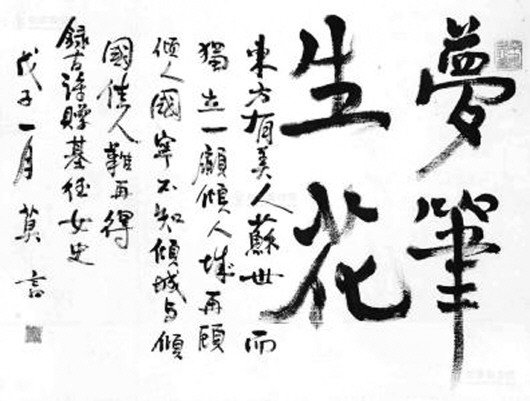 夢筆
生花
東方有美人蘇世而
獨立一顧傾人城再顧
傾人國寧不知傾城与傾
國佳人難再得
録古詩贈基任女史
戊子一月莫言